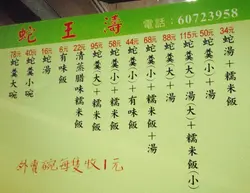 蛇王濤
電話：60723958
78元 蛇羹大碗
40元 蛇羹小碗
16元 湯
6元 有味飯
22元 清蒸腊味糯米飯
95元 蛇羹(大)+糯米飯
58元 蛇羹(小)+糯米飯
44元 蛇羹(小)+有味飯
68元 蛇羹(小)+糯米飯+湯
88元 蛇羹(大)+湯
115元 蛇羹(大)+湯+糯米飯(小)
50元 蛇羹(小)+湯
34元 湯+糯米飯
外賣碗每隻收1元